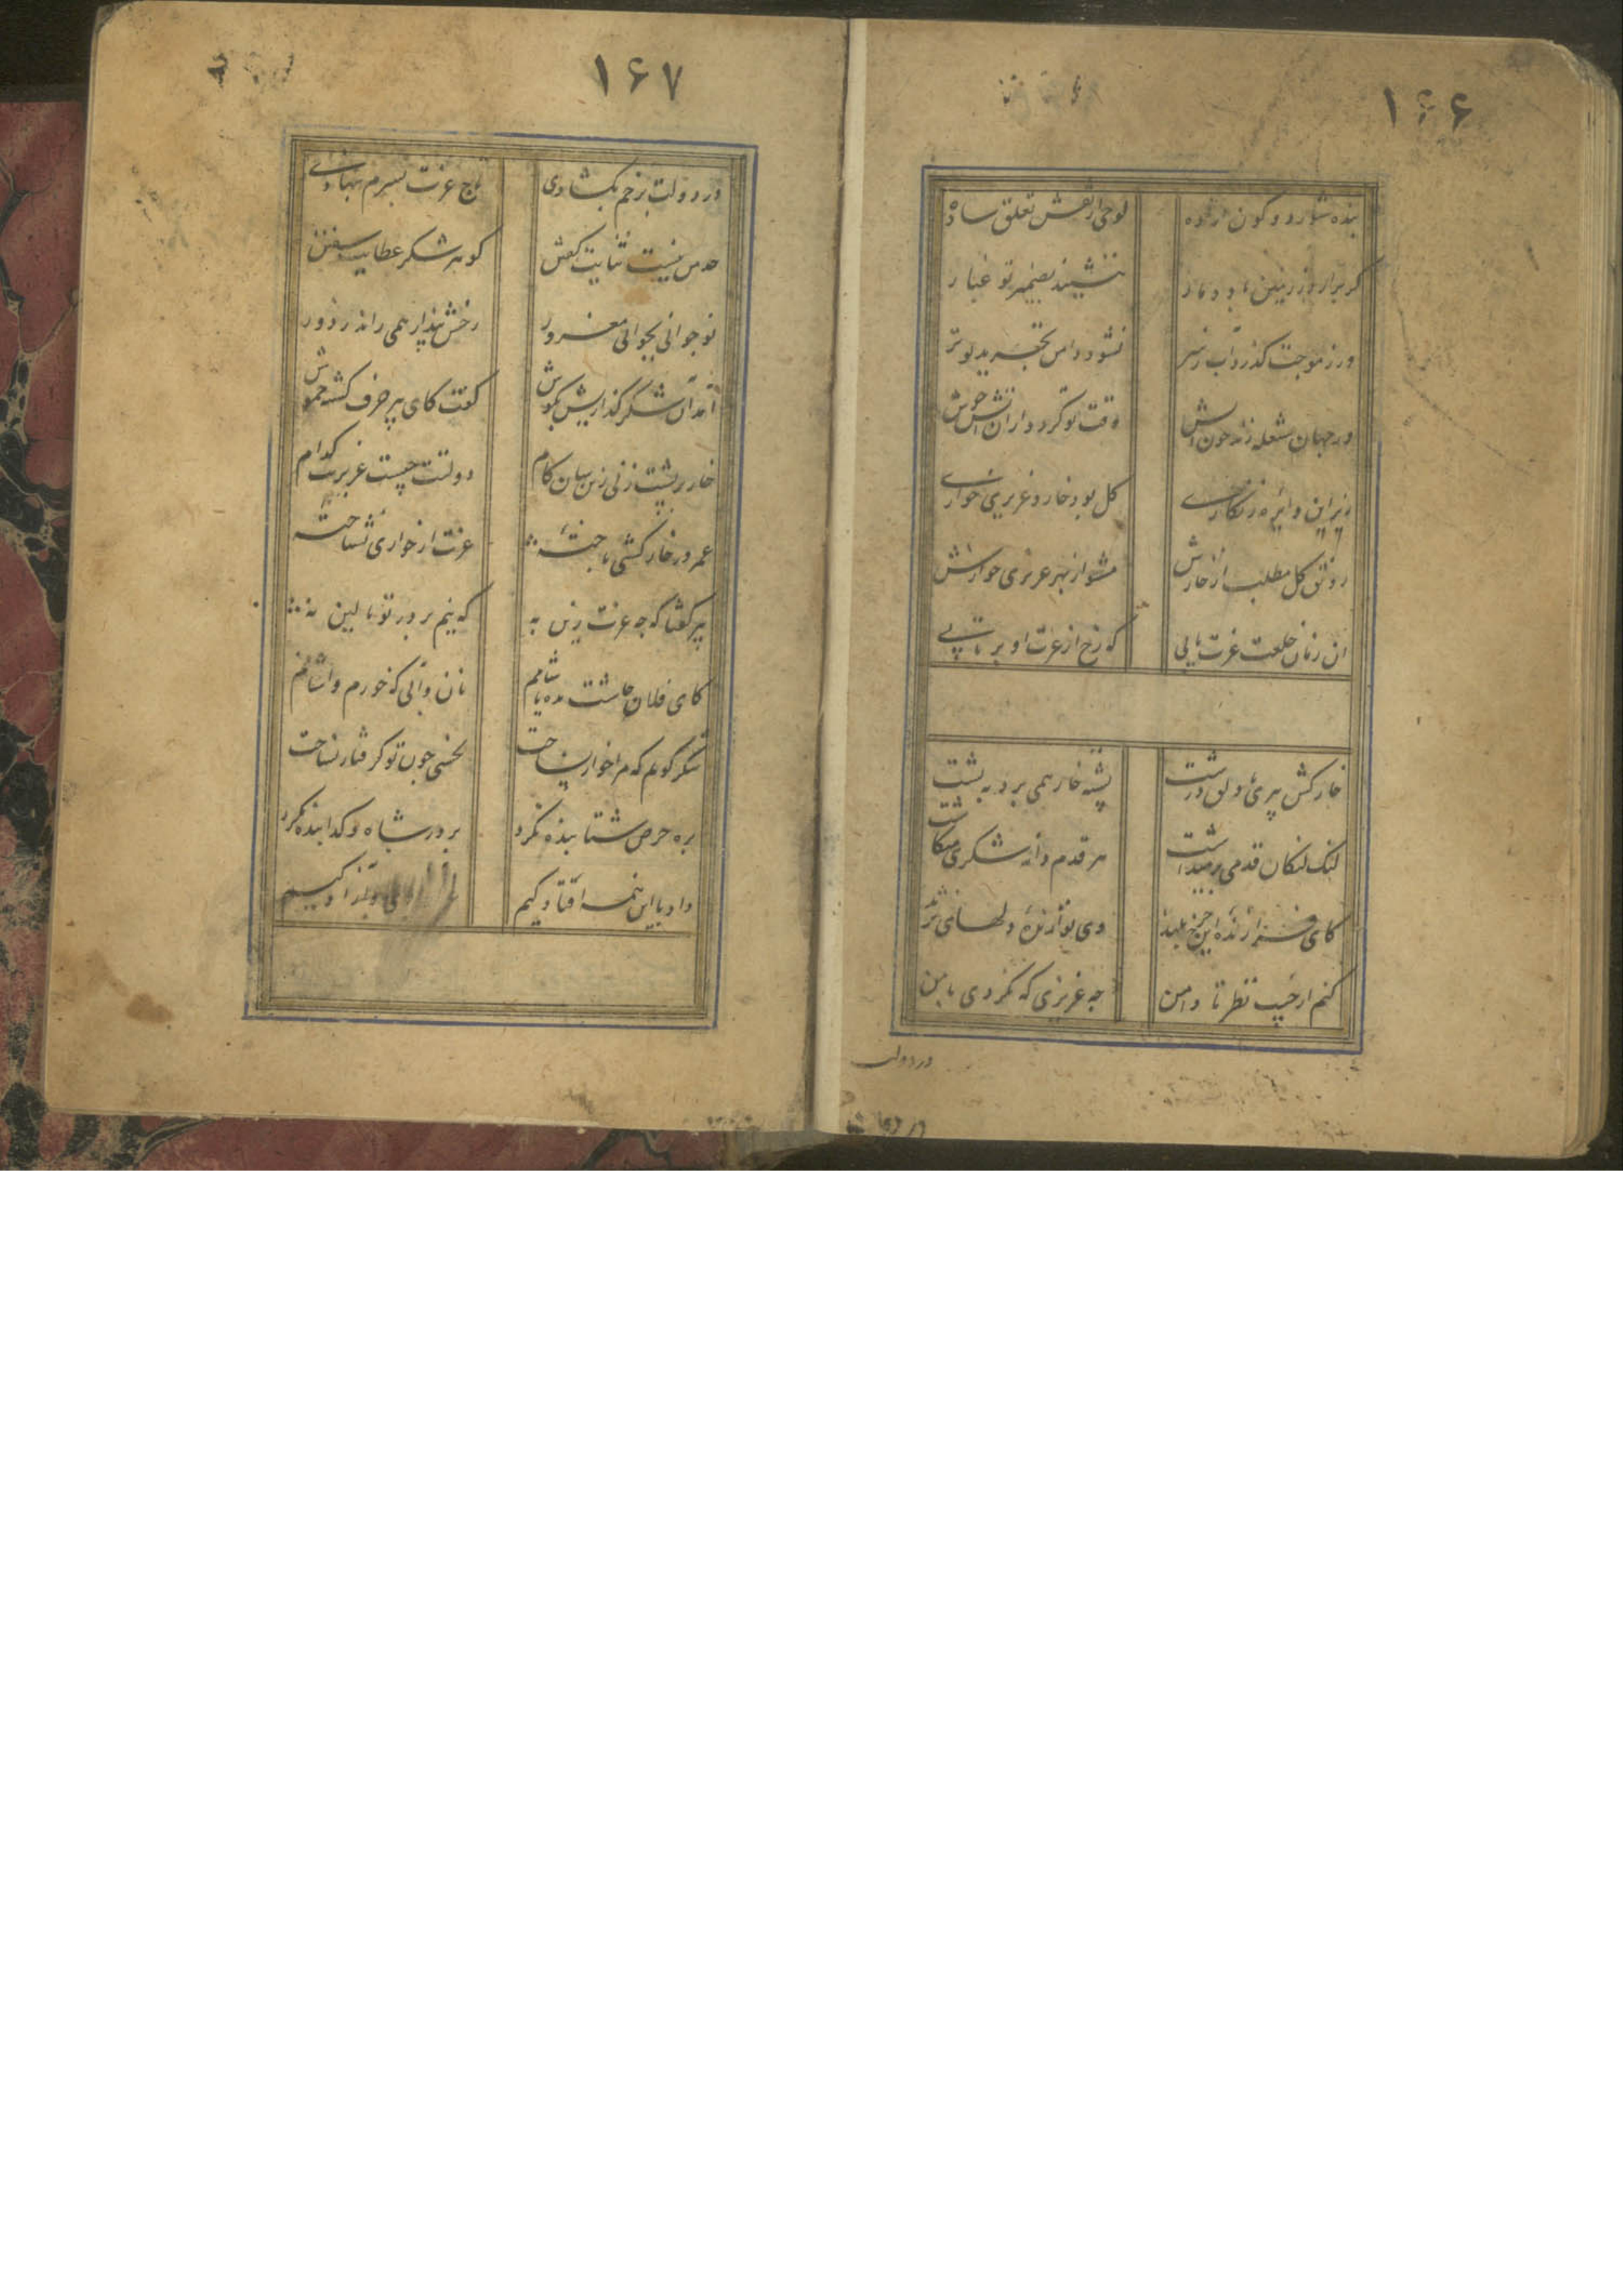 ۱۶۶
بنده شو از دو کون آزاده لوحی از نقش تعلق ساده
گر برآرد ز زمین باد دمار ننشیند بضمیر تو غبار
ور ز موجت گذرد آب ز سر نشود دامن تجرید تو تر
ور جهان شعله زند چون آتش وقت تو گردد از آن آتش خوش
زیر این دایره زنگاری گل بود خار و عزیزی خواری
رونق گل مطلب از خارش مشو از بهر عزیزی خوارش
آن زمان خلعت عزت یابی که رخ از عزت او برتابی
خارکش پیری با دلق درشت پشته خار همی برد به پشت
لنگ لنگان قدمی برمیداشت هر قدم دانه شکری میکاشت
کای فرازنده این چرخ بلند وی نوازنده دلهای نژند
کنم از جیب نظر تا دامن چه عزیزی که نکردی با من
در دولت
۱۶۷
در دولت برخم بگشادی تاج عزت بسرم بنهادی
حد من نیست ثنایت گفتن گوهر شکر عطایت سفتن
نوجوانی بجوانی مغرور رخش پندار همی راند ز دور
آمد آن شکر گذاریش بگوش گفت کای پیر خرف گشته خموش
خار بر پشت زنی زین سان گام دولتت چیست عزیزیت کدام
عمر در خارکشی باخته عزت از خواری نشناخته
پیر گفتا که چه عزت زین به که نیم بر در تو بالین نه
کای فلان چاشت بده یا شامم نان و آبی که خورم و آشامم
شکر گویم که مرا خوار نساخت بخسی چون تو گرفتار نساخت
بره حرص شتابنده نکرد بر در شاه و گدا بنده نکرد
داد با این همه افتادگیم